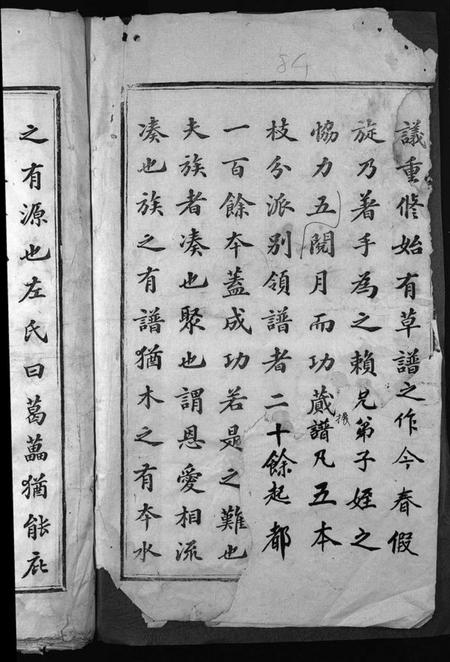 84
議重修始有草譜之作今春假
旋乃著手為之賴兄弟子姪之
恊力五閱月而功蕆譜凡五本
枝分派別領譜者二十餘起都
一百餘夲蓋成功若是之難也
夫族者凑也聚也謂恩愛相流
凑也族之有譜猶木之有夲水
之有源也左氏曰葛藟猶能庇